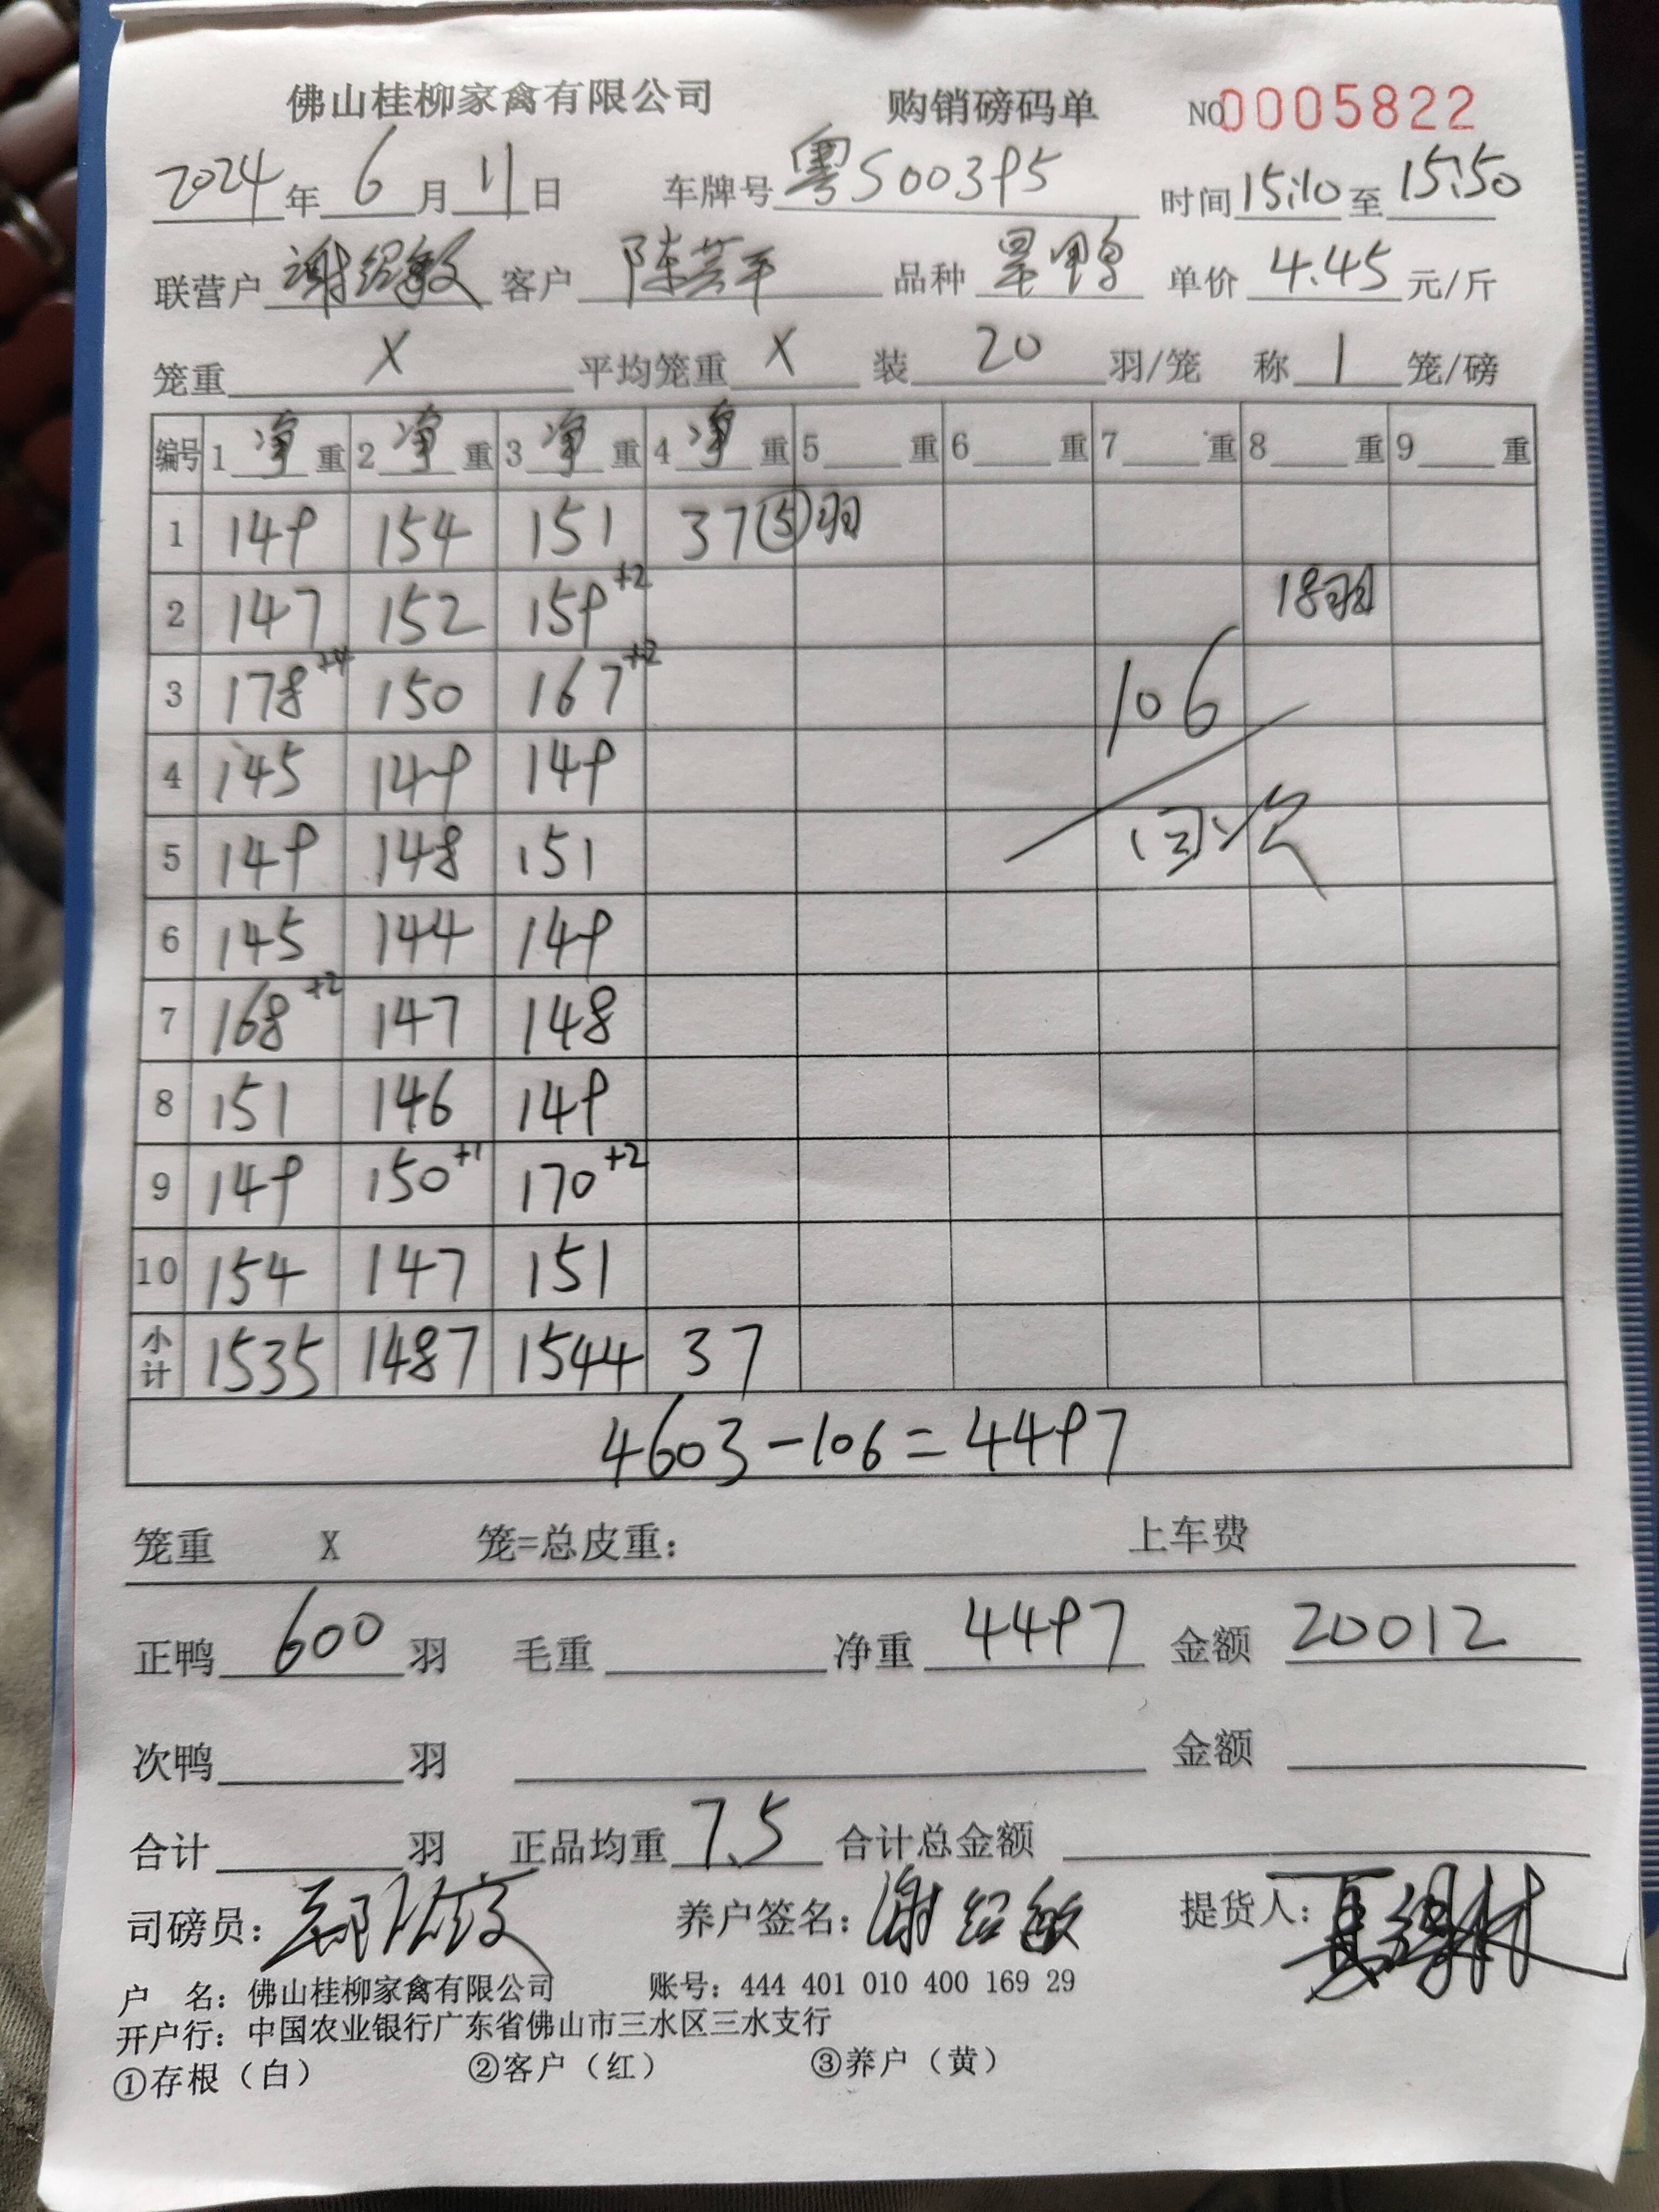 佛山桂柳家禽有限公司 购销磅码单 NO 0005822
2024年6月11日 车牌号 粤S00395 时间 15:10 至 15:50
联营户 谢绍敏 客户 陈芸平 品种 旱鸭 单价 4.45 元/斤
笼重 X 平均笼重 X 装 20 羽/笼 称 1 笼/磅
编号 1 净 重 2 净 重 3 净 重 4 净 重 5 重 6 重 7 重 8 重 9 重
1 149 154 151 37 ⑤羽
2 147 152 159+2 18羽
3 178+4 150 167+2 106
4 145 149 149
5 149 148 151 回次
6 145 144 149
7 168+2 147 148
8 151 146 149
9 149 150+1 170+2
10 154 147 151
小计 1535 1487 1544 37
4603-106=4497
笼重 X 笼=总皮重: 上车费
正鸭 600 羽 毛重 净重 4497 金额 20012
次鸭 羽 金额
合计 羽 正品均重 7.5 合计总金额
司磅员: 养户签名: 谢绍敏 提货人:
户 名: 佛山桂柳家禽有限公司 账号: 444 401 010 400 169 29
开户行: 中国农业银行广东省佛山市三水区三水支行
①存根（白） ②客户（红） ③养户（黄）